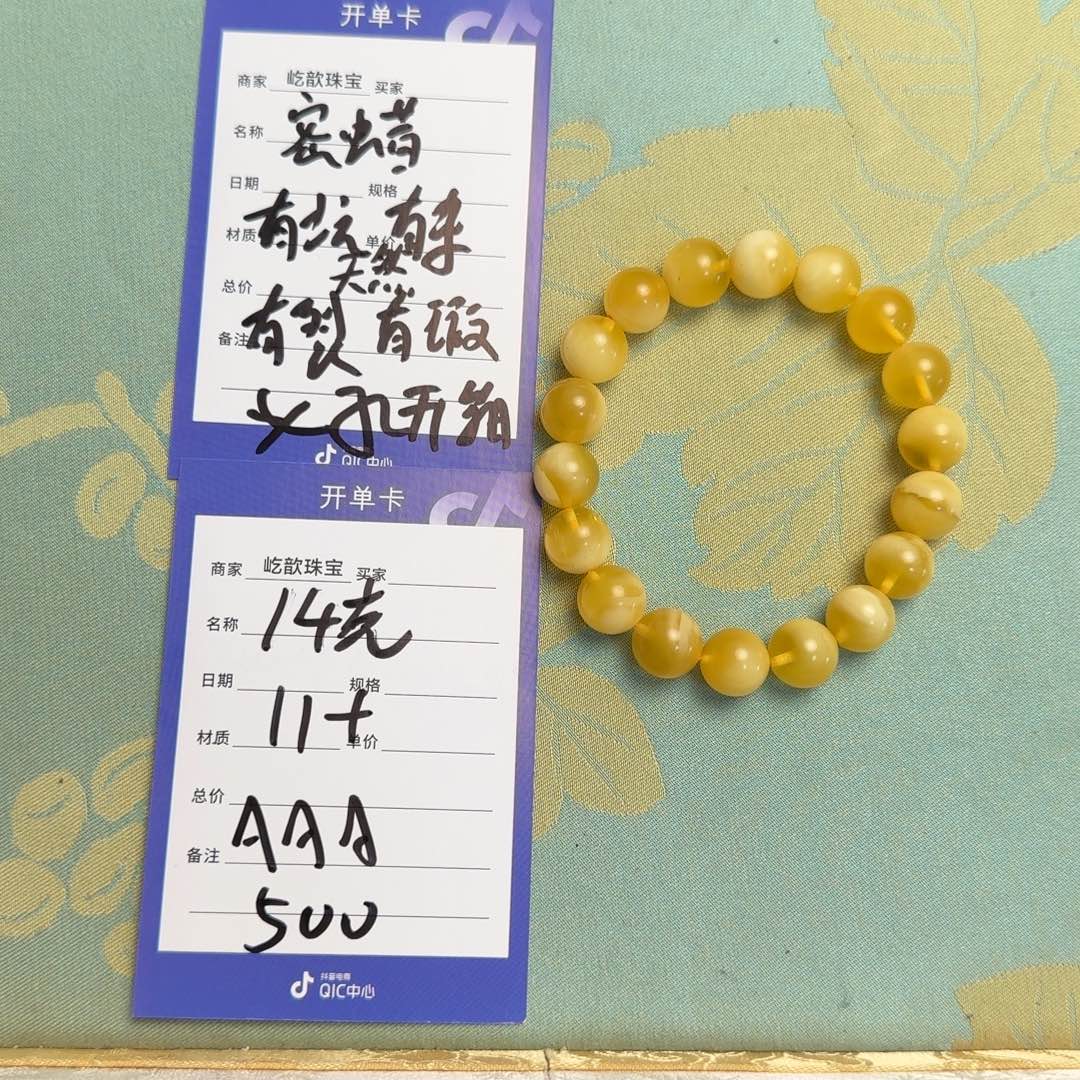 开单卡
商家 屹歆珠宝 买家
名称 密蜡
日期 规格
材质 有坑 单价 有未
天然
总价
备注 有裂 有瑕
孔开箱
QIC中心
开单卡
商家 屹歆珠宝 买家
名称 14克
日期 规格
材质 11+ 单价
总价
备注 AAA
500
抖音电商
QIC中心